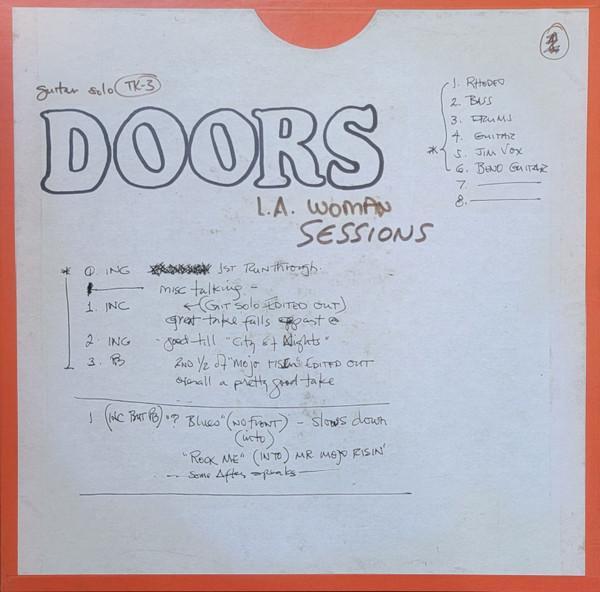 guitar solo TK-3
DOORS
L.A. WOMAN
SESSIONS
* 1. RHODES
2. BASS
3. DRUMS
4. GUITAR
5. JIM VOX
6. BEND GUITAR
7.
8.
* 0 ING 1ST RUN through.
misc talking -
1. INC ←(GIT SOLO EDITED OUT)
great take falls apart @
2. ING - good till "City of Nights"
3. PB 2ND 1/2 of "MOJO RISIN" EDITED OUT
overall a pretty good take
1 (INC BUT PB) "? Blues" (NO FRONT) - slows down
(into)
"ROCK ME" (INTO) MR MOJO RISIN'
-- some After speaks